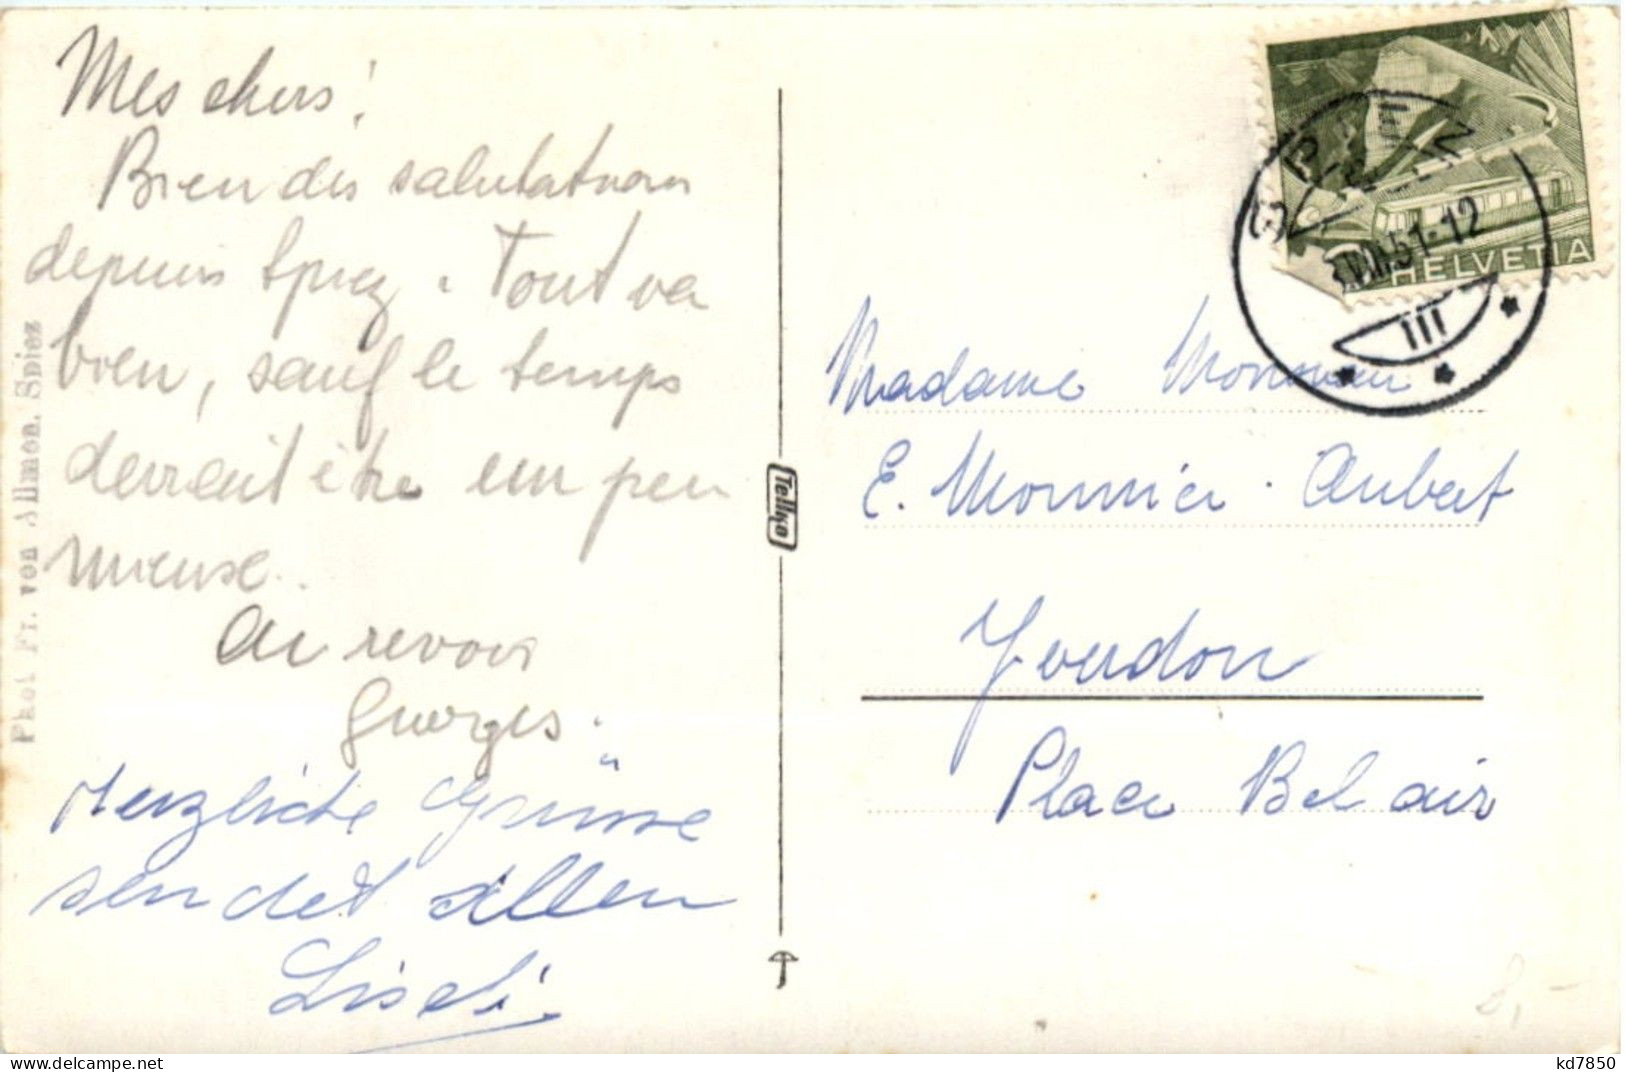 Mes chers!
Bien des salutations
depuis Spiez. Tout va
bien, sauf le temps
devrait être un peu
mieuse.
Au revoir
Georges.
Herzliche Grüsse
sendet allen
Liseli
Phot Fr. von Allmen. Spiez
Tellko
HELVETIA
51-12
III
Madame Monsieur
E. Monnier-Aubert
Yverdon
Place Bel air
8,-
delcampe.net
kd7850